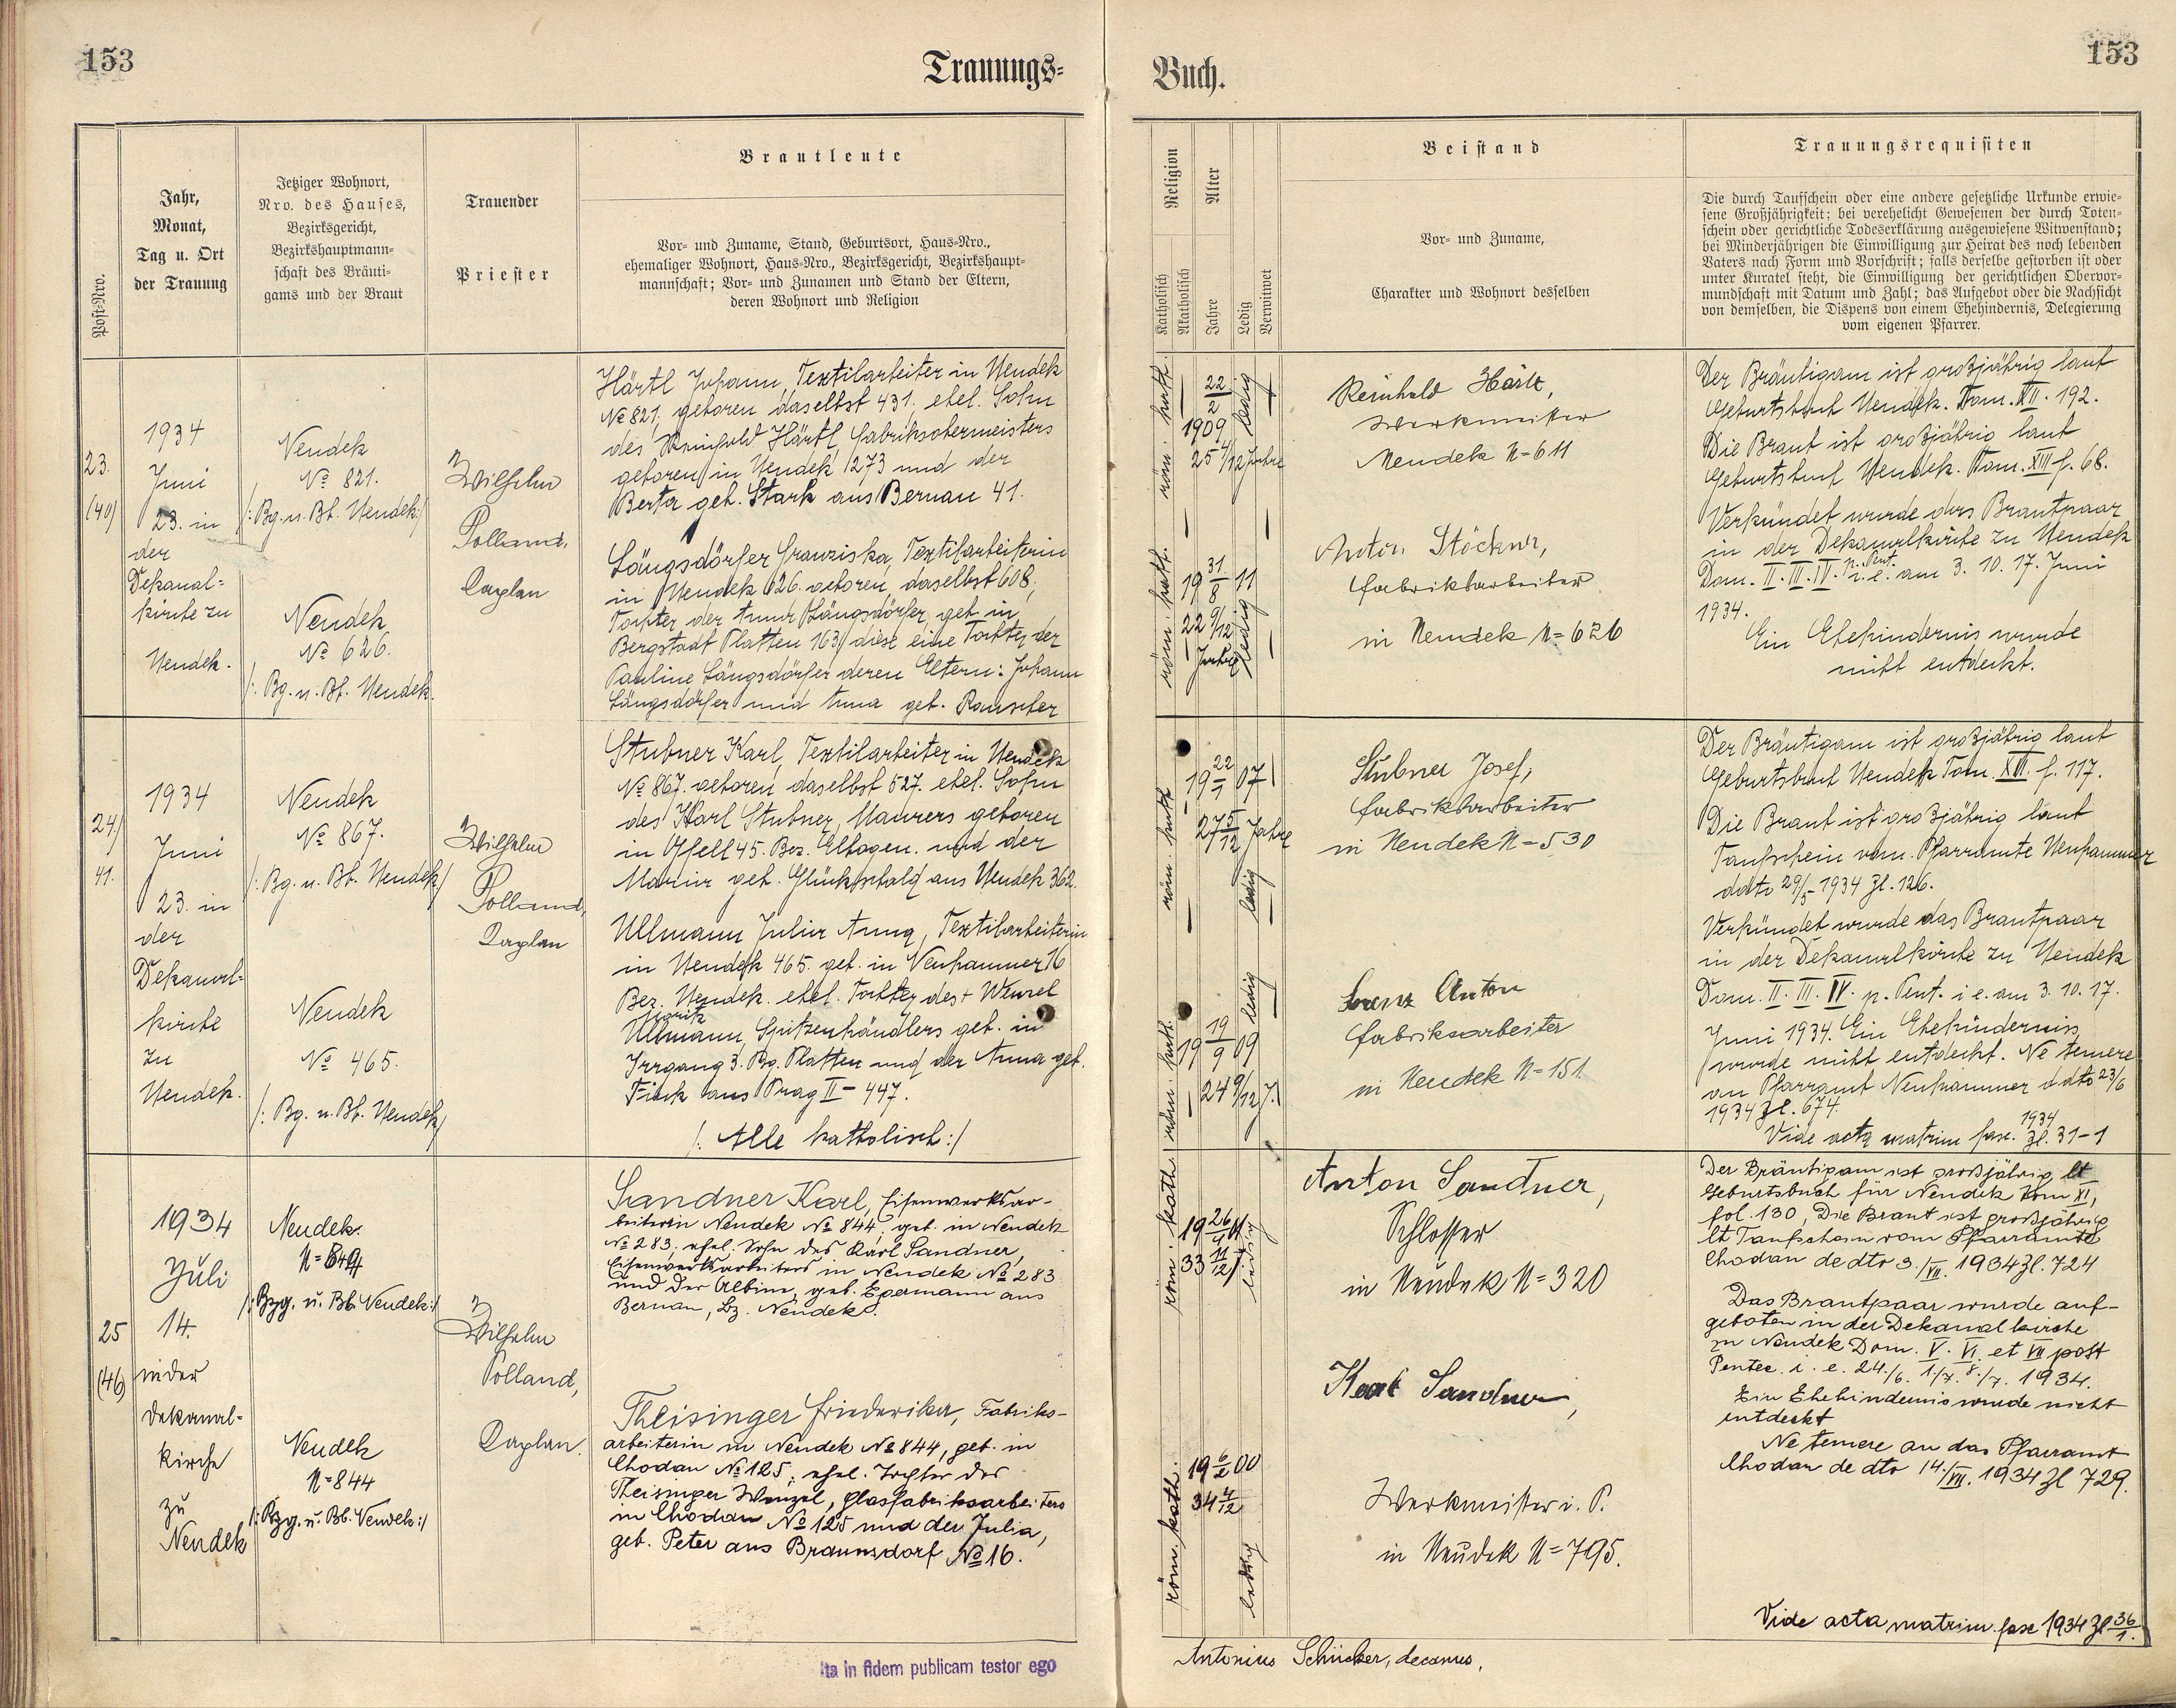 153
Trauungs=
Post-Nro.
Jahr,
Monat,
Tag u. Ort
der Trauung
Jetziger Wohnort,
Nro. des Hauses,
Bezirksgericht,
Bezirkshauptmann-
schaft des Bräuti-
gams und der Braut
Trauender
Priester
Brautleute
Vor- und Zuname, Stand, Geburtsort, Haus-Nro.,
ehemaliger Wohnort, Haus-Nro., Bezirksgericht, Bezirkshaupt-
mannschaft; Vor- und Zunamen und Stand der Eltern,
deren Wohnort und Religion
23.
(40)
1934
Juni
23. in
der
Dekanal=
kirche zu
Neudek.
Neudek
№ 821.
/: Bg. u. Bh. Neudek :/
Neudek
№ 626.
/: Bg. u. Bh. Neudek.
Wilhelm
Polland,
Kaplan
Härtl Johann, Textilarbeiter in Neudek
№ 821, geboren daselbst 431. ehel. Sohn
des Reinhold Härtl, Fabriksobermeisters
geboren in Neudek 1273 und der
Berta geb. Stark aus Bernau 41.
Längsdörfer Franziska, Textilarbeiterin
in Neudek 626. geboren daselbst 608,
Tochter der Anna Längsdörfer, geb. in
Bergstadt Platten 163, diese eine Tochter der
Pauline Längsdörfer deren Eltern: Johann
Längsdörfer und Anna geb. Rauscher
24.)
41.
1934
Juni
23. in
der
Dekanal=
kirche
zu
Neudek.
Neudek
№ 867.
/: Bg. u. Bh. Neudek /
Neudek
№ 465.
/: Bg. u. Bh. Neudek /
Wilhelm
Polland,
Kaplan
Stubner Karl, Textilarbeiter in Neudek
№ 867. geboren daselbst 527. ehel. Sohn
des Karl Stubner, Maurers geboren
in Gfell 45. Bez. Elbogen. und der
Maria geb. Glückschalg aus Neudek 362.
Ullmann Julia Anna, Textilarbeiterin
in Neudek 465. geb. in Neuhammer 16
Bez. Neudek. ehel. Tochter des + Wenzel
Moritz
Ullmann, Spitzenhändlers geb. in
Irrgang 3. Bg. Platten und der Anna geb.
Fick aus Prag II - 447.
/: Alle katholisch :/
25
(46)
1934
Juli
14.
in der
Dekanal=
kirche
zu
Neudek
Neudek
N=844
/: Bzg. u. Bh. Neudek :/
Neudek
N=844
/: Bzg. u. Bh. Neudek :/
Wilhelm
Polland,
Kaplan.
Sandner Karl, Eisenwerksar-
beiter in Neudek № 844, geb. in Neudek
№ 283, ehel. Sohn des Karl Sandner,
Eisenwerksarbeiters in Neudek № 283
und der Albine, geb. Egermann aus
Bernau, Bz. Neudek.
Theisinger Friederika, Fabriks-
arbeiterin in Neudek № 844, geb. in
Chodau № 125, ehel. Tochter des
Theisinger Wenzel, Glasfabriksarbeiters
in Chodau № 125 und der Julia,
geb. Peter aus Braunsdorf № 16.
Ita in fidem publicam testor ego
153
Buch.
Religion
Katholisch
Akatholisch
Alter
Jahre
Ledig
Verwitwet
Beistand
Vor- und Zuname,
Charakter und Wohnort desselben
Trauungsrequisiten
Die durch Taufschein oder eine andere gesetzliche Urkunde erwie-
sene Großjährigkeit; bei verehelicht Gewesenen der durch Toten-
schein oder gerichtliche Todeserklärung ausgewiesene Witwenstand;
bei Minderjährigen die Einwilligung zur Heirat des noch lebenden
Vaters nach Form und Vorschrift; falls derselbe gestorben ist oder
unter Kuratel steht, die Einwilligung der gerichtlichen Obervor-
mundschaft mit Datum und Zahl; das Aufgebot oder die Nachsicht
von demselben, die Dispens von einem Ehehindernis, Delegierung
vom eigenen Pfarrer.
röm. kath.
22/2
1909
25 4/12 Jahre
ledig
röm. kath.
19 31/8 11
22 9/12
Jahre
ledig
Reinhold Härtl,
Werkmeister
Neudek N=611
Anton Stöckner,
Fabriksarbeiter
in Neudek N=626
Der Bräutigam ist großjährig laut
Geburtsbuch Neudek. Tom. XII. 192.
Die Braut ist großjährig laut
Geburtsbuch Neudek. Tom. XIII f. 68.
Verkündet wurde das Brautpaar
in der Dekanalkirche zu Neudek
Dom. II. III. IV. p. Pent. i. e. am 3. 10. 17. Juni
1934.
Ein Ehehindernis wurde
nicht entdeckt.
röm. kath
19 22/1 07
27 5/12 Jahre
ledig
röm. kath.
19 19/9 09
24 9/12 J.
ledig
Stubner Josef,
Fabriksarbeiter
in Neudek N=530
Lorenz Anton
Fabriksarbeiter
in Neudek N=151
Der Bräutigam ist großjährig laut
Geburtsbuch Neudek Tom. XII. f. 117.
Die Braut ist großjährig laut
Taufschein vom. Pfarramte Neuhammer
ddto 29/5 1934 Zl. 126.
Verkündet wurde das Brautpaar
in der Dekanalkirche zu Neudek
Dom. II. III. IV. p. Pent. i e. am 3. 10. 17.
Juni 1934. Ein Ehehinderniss
wurde nicht entdeckt. Ne temere
an Pfarramt Neuhammer ddto 23/6
1934 Zl. 674.
Vide acta matrim fasc. 1934 Zl. 31-1
röm. kath.
19 26/7 01
33 11/12 J.
ledig
röm. kath.
19 6/2 00
34 4/12
ledig
Anton Sandner,
Schlosser
in Neudek N=320
Karl Sandner,
Werkmeister i. P.
in Neudek N=795.
Der Bräutigam ist großjährig lt
Geburtsbuch für Neudek Tom XI,
fol. 130, Die Braut ist großjährig
lt Taufschein vom Pfarramte
Chodau de dto 3./VII. 1934 Zl. 724
Das Brautpaar wurde auf-
geboten in der Dekanalkirche
zu Neudek Dom. V. VI. et VII post
Pentec. i. e. 24./6. 1./7. 8./7. 1934.
Ein Ehehindernis wurde nicht
entdeckt
Ne temere an das Pfarramt
Chodau de dto 14./VII. 1934 Zl 729.
Vide acta matrim. fasc 1934 Zl 36/1.
Antonius Schücker, decanus,